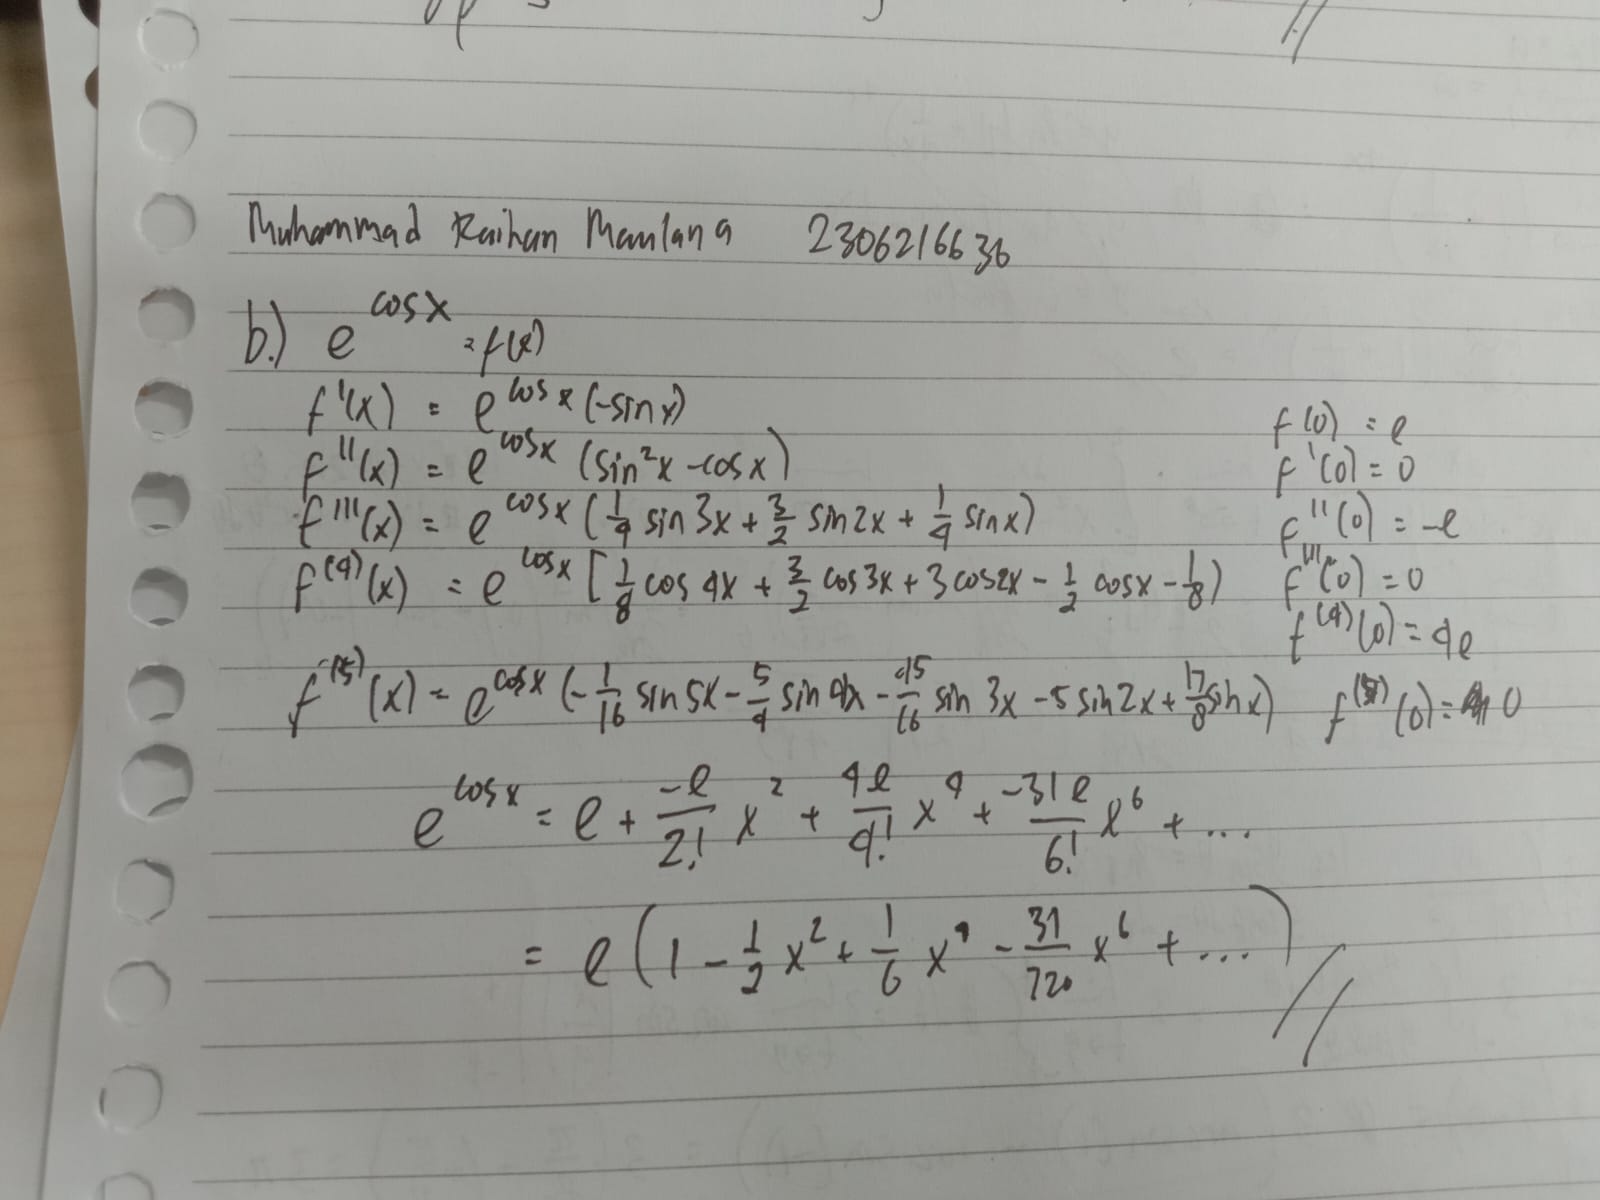 Muhammad Raihan Maulana 2306216636
b.) e^cosx = f(x)
f'(x) = e^cosx (-sinx)
f(0) = e
f''(x) = e^cosx (sin²x - cosx)
f'(0) = 0
f'''(x) = e^cosx (1/4 sin 3x + 3/2 sin 2x + 1/4 sinx)
f''(0) = -e
f^(4)(x) = e^cosx [1/8 cos 4x + 3/2 cos 3x + 3 cos2x - 1/2 cosx - 1/8)
f'''(0) = 0
f^(4)(0) = 4e
f^(5)(x) = e^cosx (-1/16 sin 5x - 5/4 sin 4x - 45/16 sin 3x - 5 sin 2x + 17/8 sinx) f^(5)(0) = 0
e^cosx = e + -e/2! x² + 4e/4! x⁴ + -31e/6! x⁶ + ...
= e (1 - 1/2 x² + 1/6 x⁴ - 31/720 x⁶ + ...) //